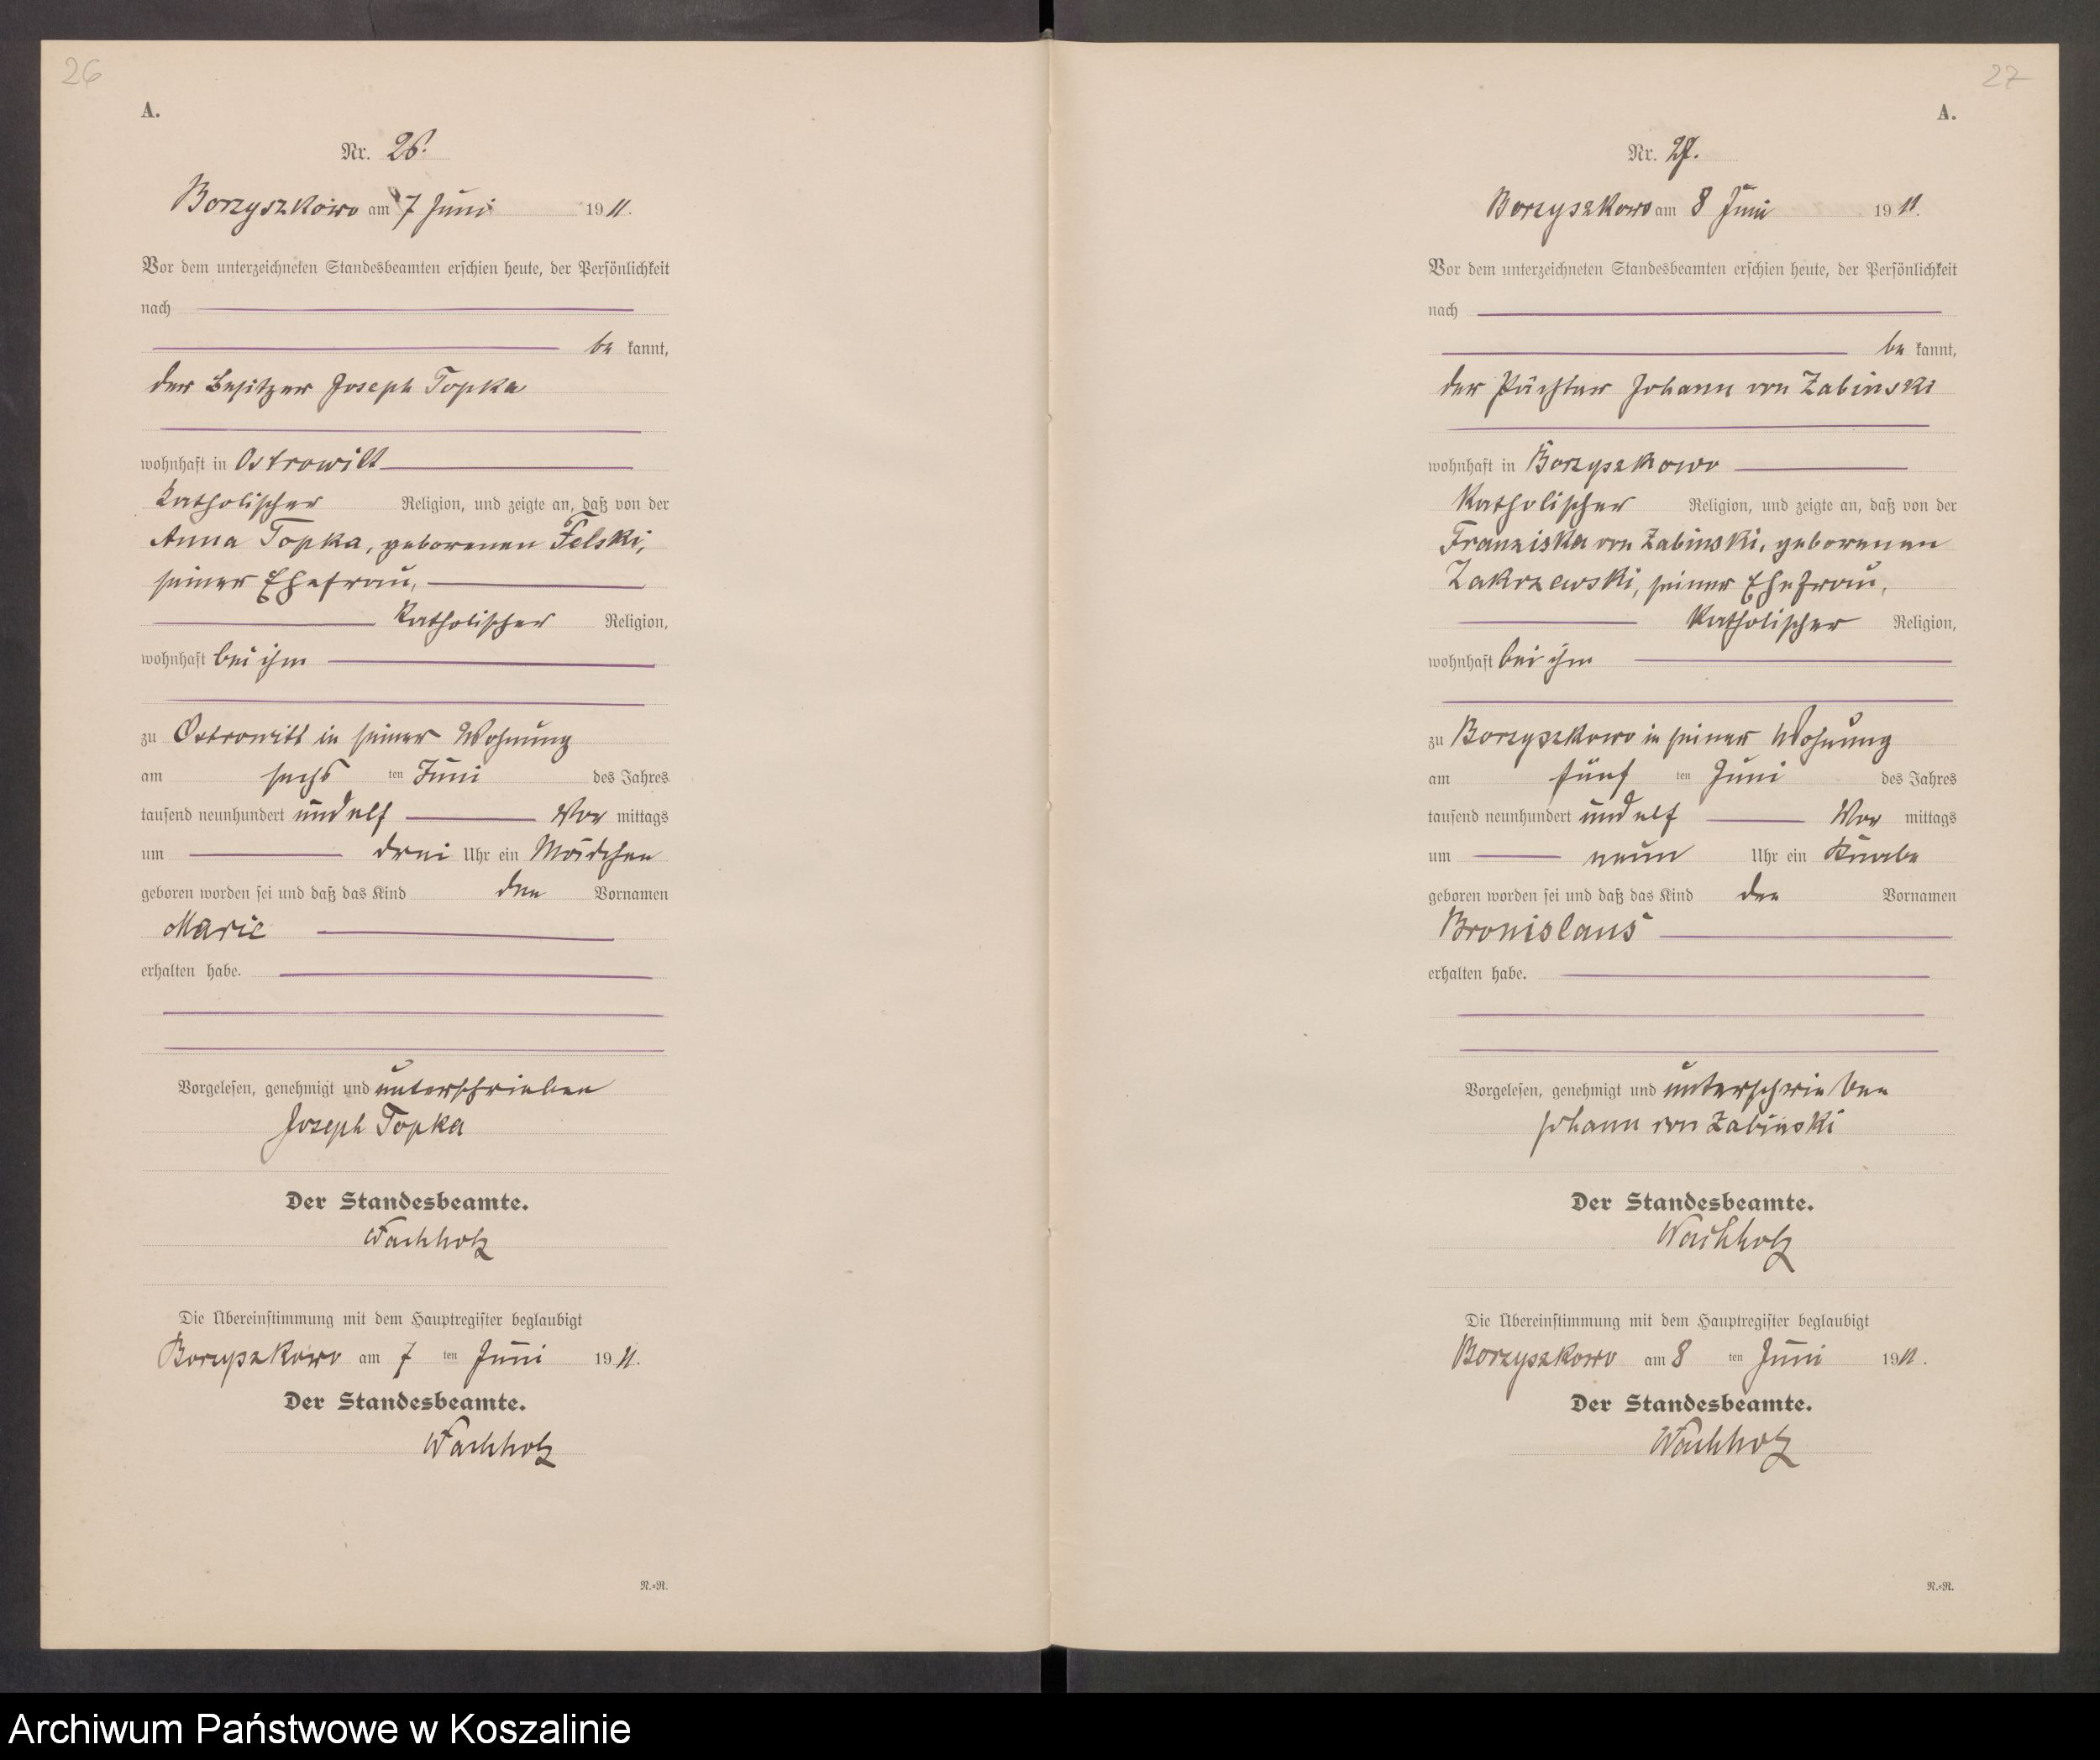 26
A.
Nr. 26.
Borzyszkowo am 7 Juni 1911.
Vor dem unterzeichneten Standesbeamten erschien heute, der Persönlichkeit
nach
be kannt,
der Besitzer Joseph Topka
wohnhaft in Ostrowitt
katholischer Religion, und zeigte an, daß von der
Anna Topka, geborenen Felski,
seiner Ehefrau,
katholischer Religion,
wohnhaft bei ihm
zu Ostrowitt in seiner Wohnung
am sechs ten Juni des Jahres
tausend neunhundert und elf Vor mittags
um drei Uhr ein Mädchen
geboren worden sei und daß das Kind den Vornamen
Marie
erhalten habe.
Vorgelesen, genehmigt und unterschrieben
Joseph Topka
Der Standesbeamte.
Wachholz
Die Übereinstimmung mit dem Hauptregister beglaubigt
Borzyszkowo am 7 ten Juni 1911.
Der Standesbeamte.
Wachholz
N.=R.
27
A.
Nr. 27.
Borzyszkowo am 8 Juni 1911.
Vor dem unterzeichneten Standesbeamten erschien heute, der Persönlichkeit
nach
be kannt,
der Pächter Johann von Zabinski
wohnhaft in Borzyszkowo
katholischer Religion, und zeigte an, daß von der
Franziska von Zabinski, geborenen
Zakrzewski, seiner Ehefrau,
katholischer Religion,
wohnhaft bei ihm
zu Borzyszkowo in seiner Wohnung
am fünf ten Juni des Jahres
tausend neunhundert und elf Vor mittags
um neun Uhr ein Knabe
geboren worden sei und daß das Kind den Vornamen
Bronislaus
erhalten habe.
Vorgelesen, genehmigt und unterschrieben
Johann von Zabinski
Der Standesbeamte.
Wachholz
Die Übereinstimmung mit dem Hauptregister beglaubigt
Borzyszkowo am 8 ten Juni 1911.
Der Standesbeamte.
Wachholz
N.=R.
Archiwum Państwowe w Koszalinie